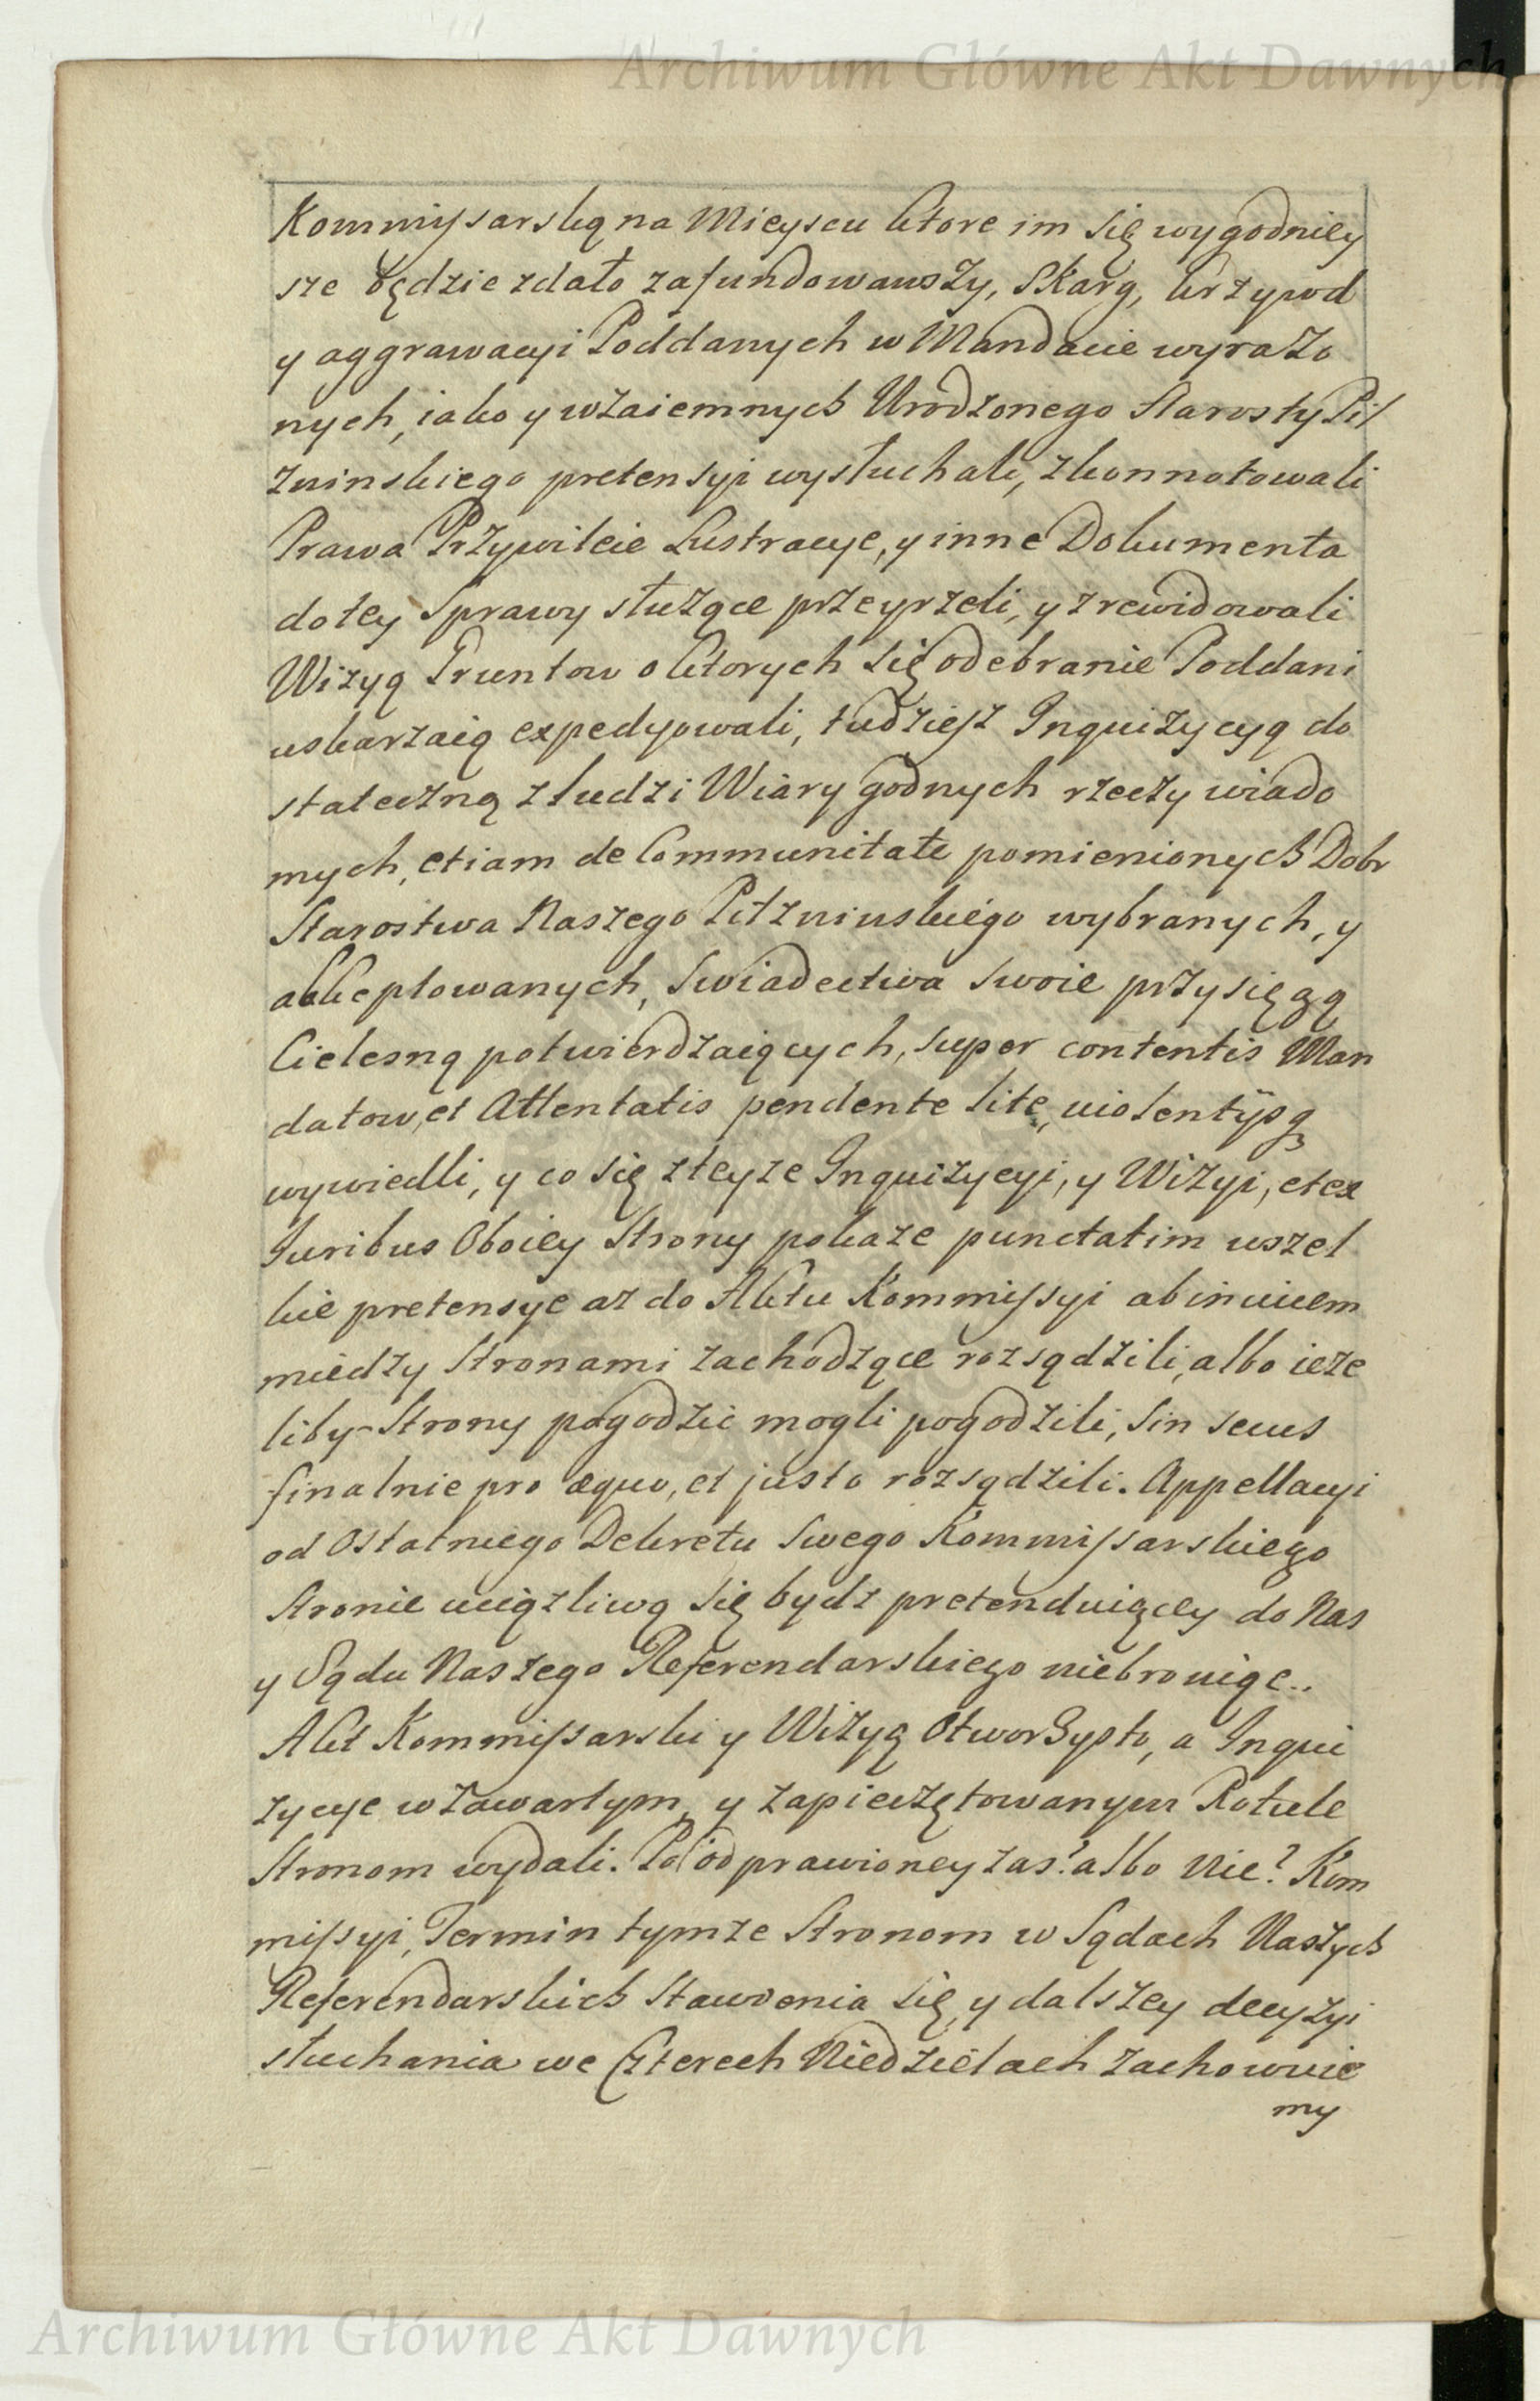 Archiwum Główne Akt Dawnych
Kommissarską na Mieyscu ktore im się wygodniey
sze będzie zdało zafundowawszy, Skarg, krzywd
y aggrawacyi Poddanych w Mandacie wyrażo
nych, iako y wzaiemnych Urodzonego Starosty Pil
zninskiego pretensyi wysłuchali, zkonnotowali
Prawa Przywileie Lustracye, y inne Dokumenta
do tey Sprawy służące przeyrzeli, y zrewidowali
Wizyą Gruntow o ktorych się odebranie Poddani
uskarzaią expedyowali, tudziesz Inquizycyą do
stateczną z ludzi Wiary godnych rzeczy wiado
mych, etiam de Communitate pomienionych Dobr
Starostwa Naszego Pilzninskiego wybranych, y
akkceptowanych, Swiadectwa swoie przysięgą
Cielesną potwierdzaiących, super contentis Man
datow, et Attentatis pendente lite, violentijsq
wywiedli, y co się z teyze Inquizycyi, y Wizyi, et ex
Iuribus Oboiey Strony pokaze punctatim wszel
kie pretensye az do Aktu Kommissyi ab invicem
miedzy Stronami zachodzące rozsądzili, albo ieze
liby Strony pogodzic mogli pogodzili, sin secus
finalnie pro æquo, et justo rozsądzili. Appellacyi
od Ostatniego Dekretu swego Kommissarskiego
Stronie uciązliwą się bydz pretenduiącey do Nas
y Sądu Naszego Referendarskiego niebroniąc..
Akt Kommissarski y Wizyą Otworzysto, a Inqui
zycye w zawartym, y zapieczętowanym Rotule
Stronom wydali. Po odprawioney zas? albo Nie? Kom
missyi, Termin tymze Stronom w Sądach Naszych
Referendarskich Stawienia się, y dalszey decyzyi
słuchania we Czterech Niedzielach zachowuie
my
Archiwum Główne Akt Dawnych